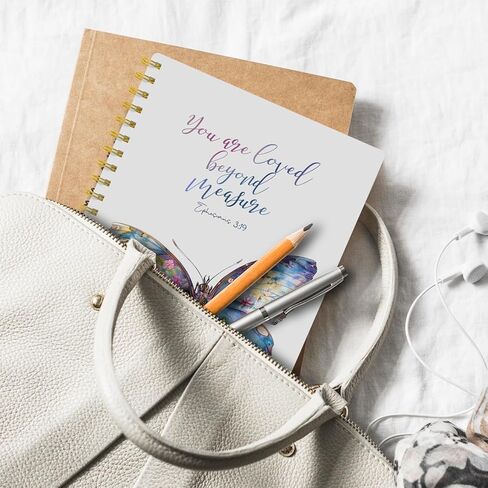 You are loved
beyond
Measure
Ephesians 3:19